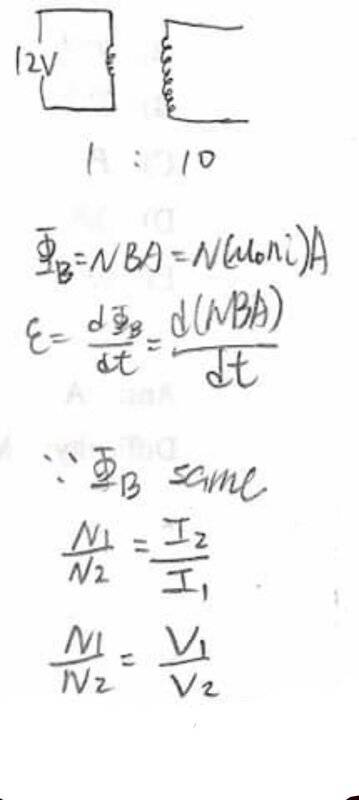 12V
1 : 10
Φ_B = NBA = N(μ₀ni)A
ε = dΦ_B/dt = d(NBA)/dt
∵ Φ_B same
N₁/N₂ = I₂/I₁
N₁/N₂ = V₁/V₂